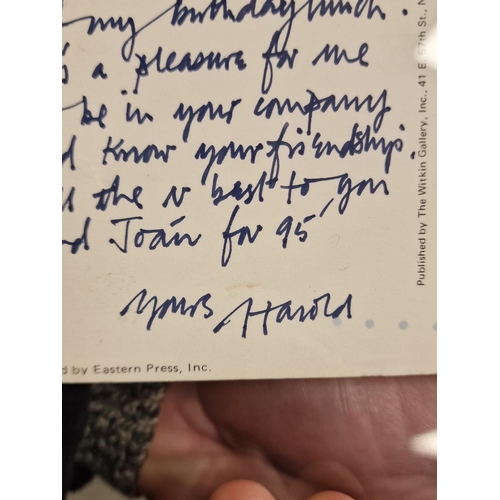 my birthday lunch.
s a pleasure for me
be in your company
d know your friendship.
ll the v best to you
nd Joan for 95'
Yours Harold
d by Eastern Press, Inc.
Published by The Witkin Gallery, Inc., 41 E. 57th St., N